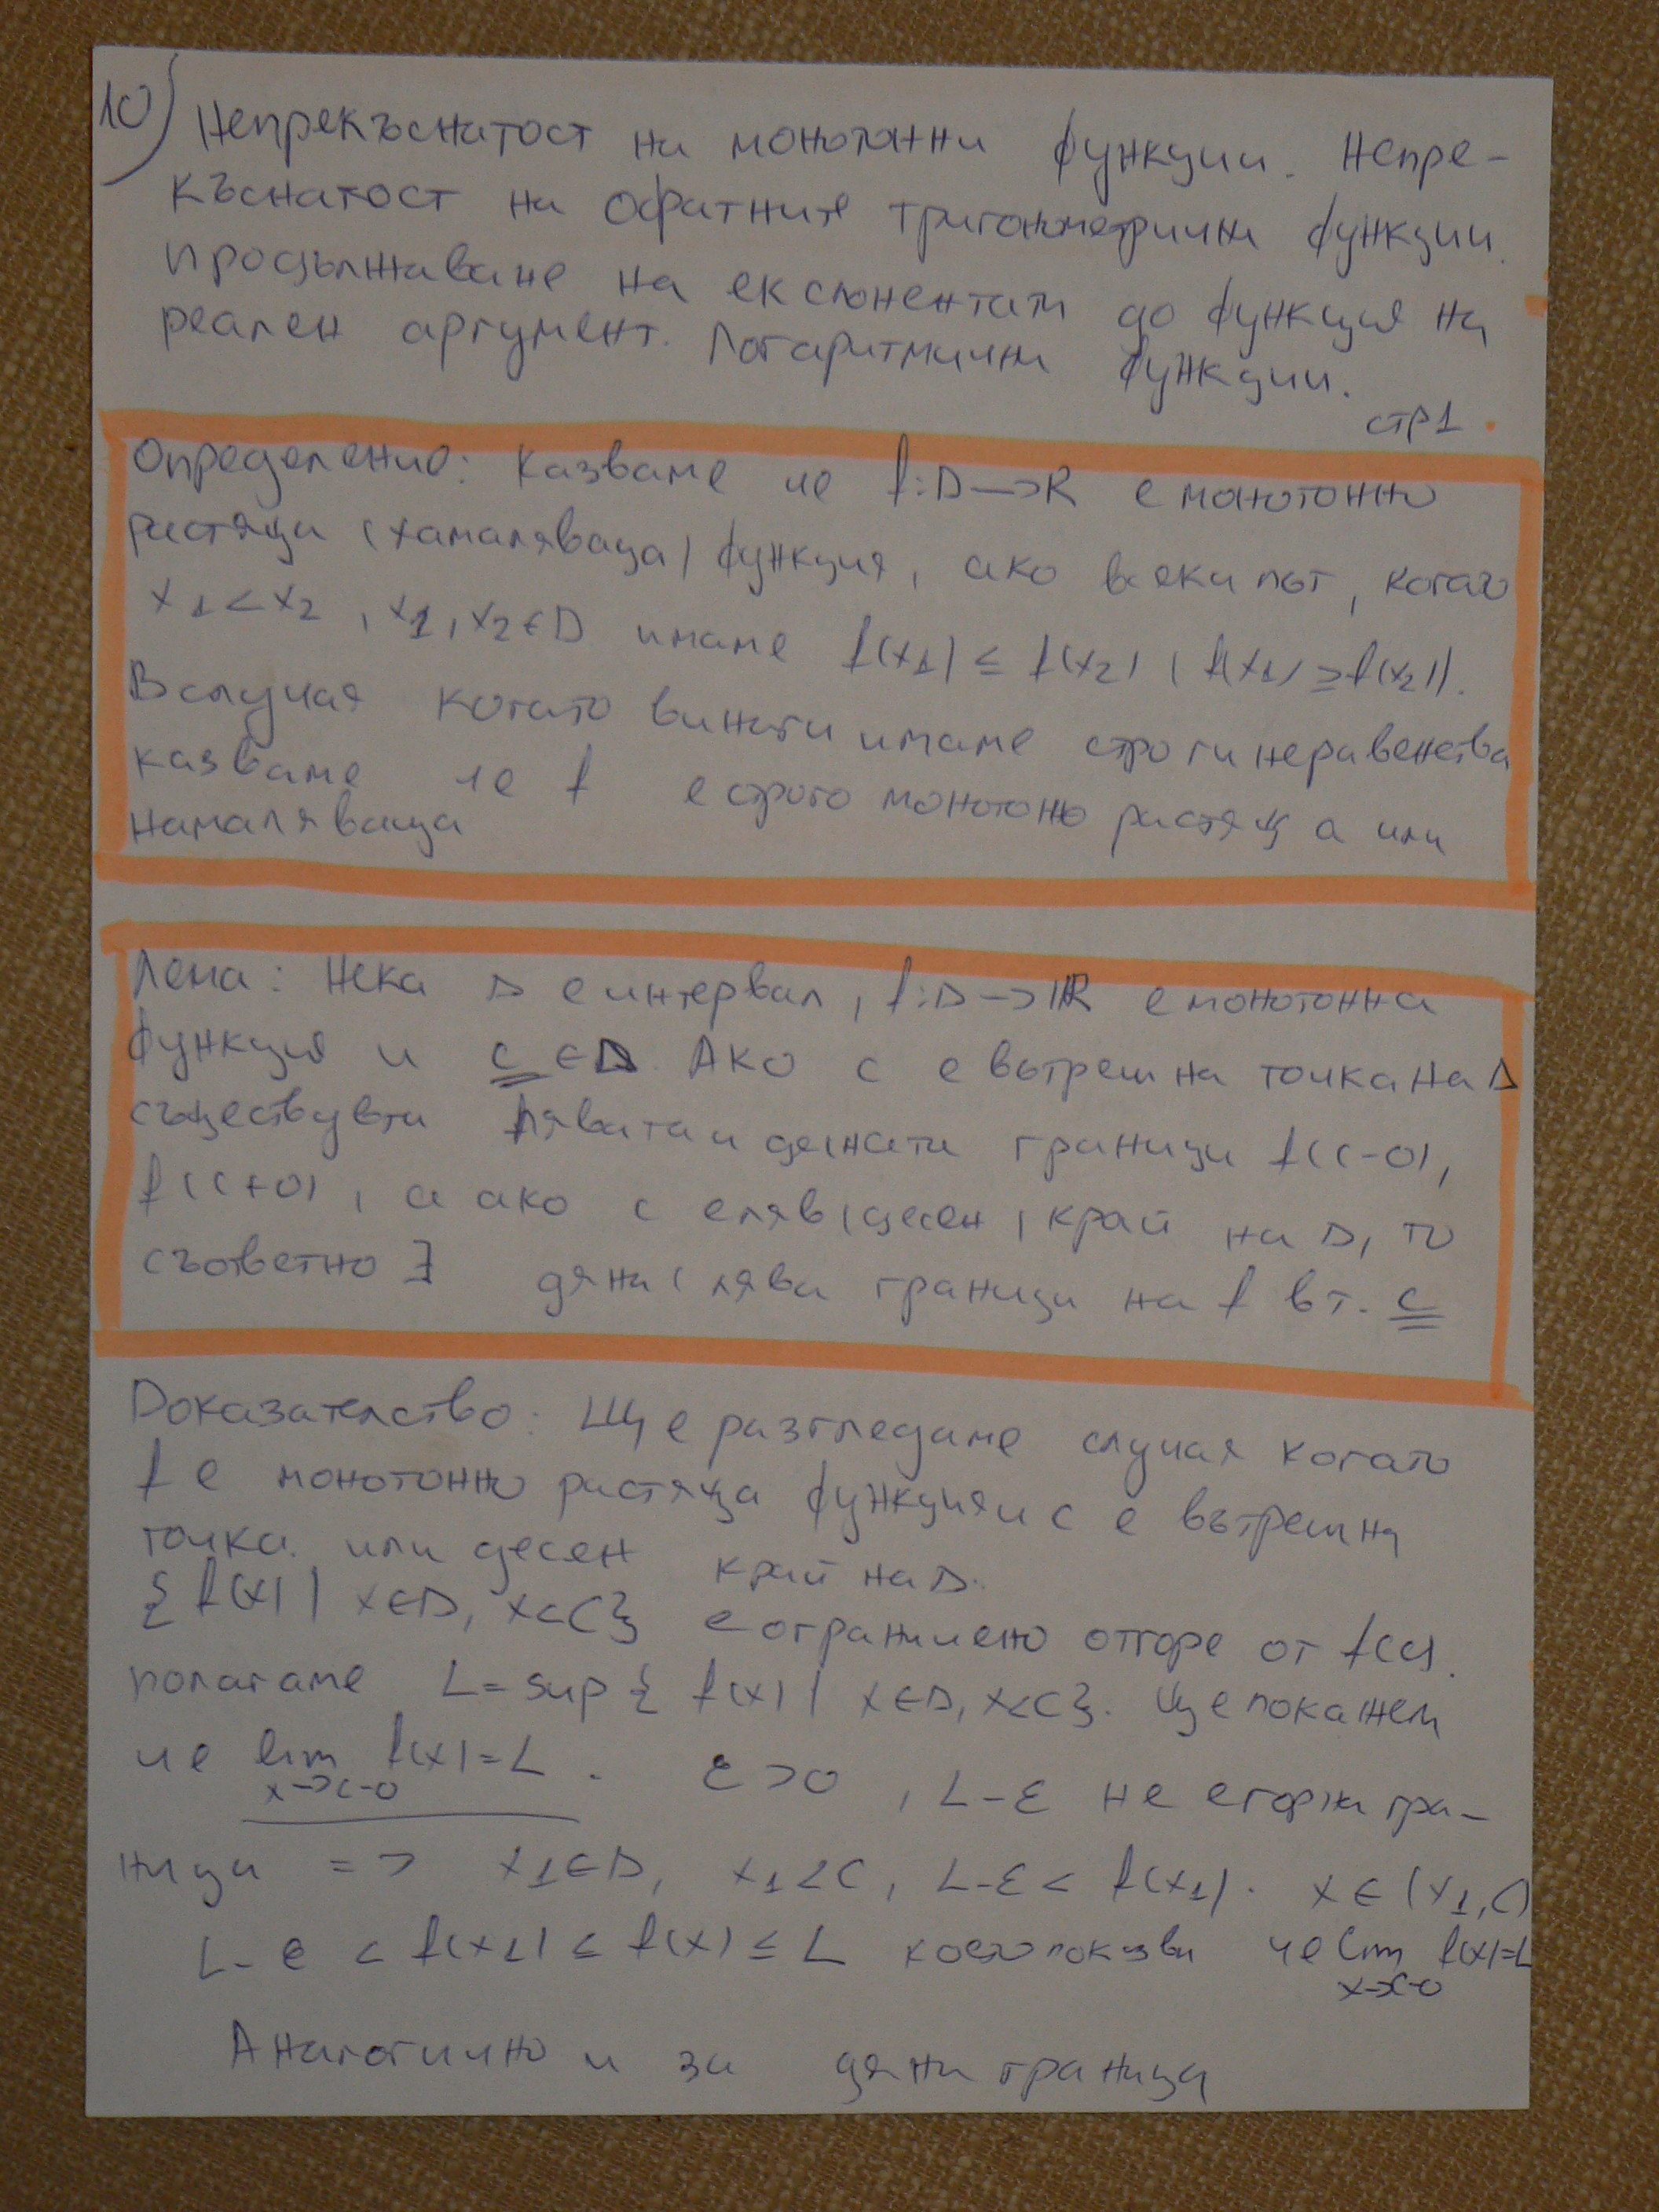 10) Непрекъснатост на монотонни функции. Непре-
къснатост на обратните тригонометрични функции.
продължаване на експонентата до функция на
реален аргумент. Логаритмични функции.
стр1.
Определение: Казваме че f:D—>R е монотонно
растяща (намаляваща) функция, ако всеки път, когато
x1<x2, x1,x2∈D имаме f(x1) ≤ f(x2) (f(x1) ≥ f(x2)).
В случая когато винаги имаме строги неравенства
казваме че f е строго монотонно растяща или
намаляваща
Лема: Нека D е интервал, f:D->ℝ е монотонна
функция и c ∈ D. Ако c е вътрешна точка на D
съществува лявата и дясната граници f(c-0),
f(c+0), а ако c е ляв (десен) край на D, то
съответно ∃ дясна (лява граница на f в т. c
Доказателство: Ще разгледаме случая когато
f е монотонно растяща функция и c е вътрешна
точка или десен край на D.
{f(x) | x∈D, x<C} е ограничено отгоре от f(c).
полагаме L=sup{f(x) | x∈D, x<C}. Ще покажем
че lim f(x)=L. ε>0, L-ε не е горна гра-
x->c-0
ница => x1∈D, x1<C, L-ε< f(x1). x∈(x1,C)
L-ε < f(x1) ≤ f(x) ≤ L което показва че lim f(x)=L
x->c-0
Аналогично и за дясна граница